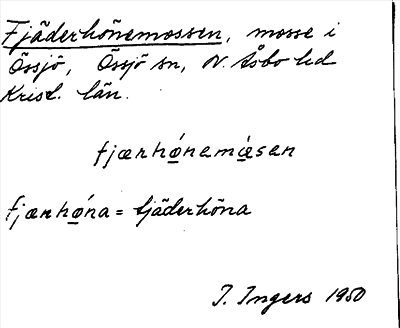 Fjäderhönemossen, mosse i
Össjö, Össjö sn, N. Åsbo hd
Krist. län.
fjærhǫ́nemǫ̀sen
fjærhǫ́na = fjäderhöna
I. Ingers 1950